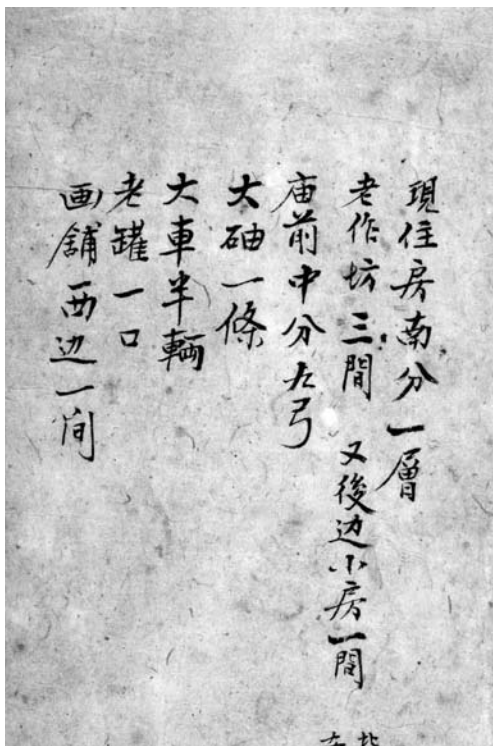 現住房南分一層
老作坊三間 又後边小房一間
庙前中分左弓
大䌷一條
大車半輛
老罐一口
画舖西边一间